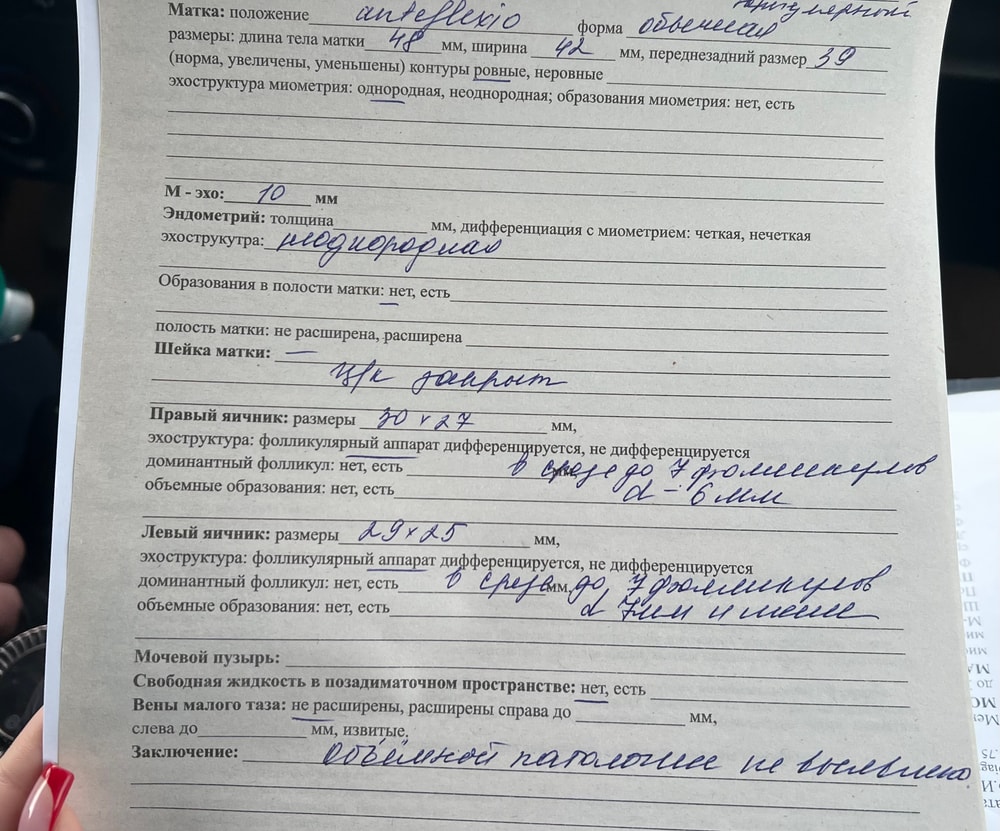 Матка: положение anteflexio форма обычная
размеры: длина тела матки 48 мм, ширина 42 мм, переднезадний размер 39
(норма, увеличены, уменьшены) контуры ровные, неровные
эхоструктура миометрия: однородная, неоднородная; образования миометрия: нет, есть
М - эхо: 10 мм
Эндометрий: толщина мм, дифференциация с миометрием: четкая, нечеткая
эхострукутра: неоднородная
Образования в полости матки: нет, есть
полость матки: не расширена, расширена
Шейка матки: —
ц/к закрыт
Правый яичник: размеры 30 х 27 мм,
эхоструктура: фолликулярный аппарат дифференцируется, не дифференцируется
доминантный фолликул: нет, есть мм, в срезе до 7 фолликулов
объемные образования: нет, есть d - 6 мм
Левый яичник: размеры 29 х 25 мм,
эхоструктура: фолликулярный аппарат дифференцируется, не дифференцируется
доминантный фолликул: нет, есть мм, в срезе до 7 фолликулов
объемные образования: нет, есть d 7мм и менее
Мочевой пузырь:
Свободная жидкость в позадиматочном пространстве: нет, есть
Вены малого таза: не расширены, расширены справа до мм,
слева до мм, извитые.
Заключение: Объёмной патологии не выявлено